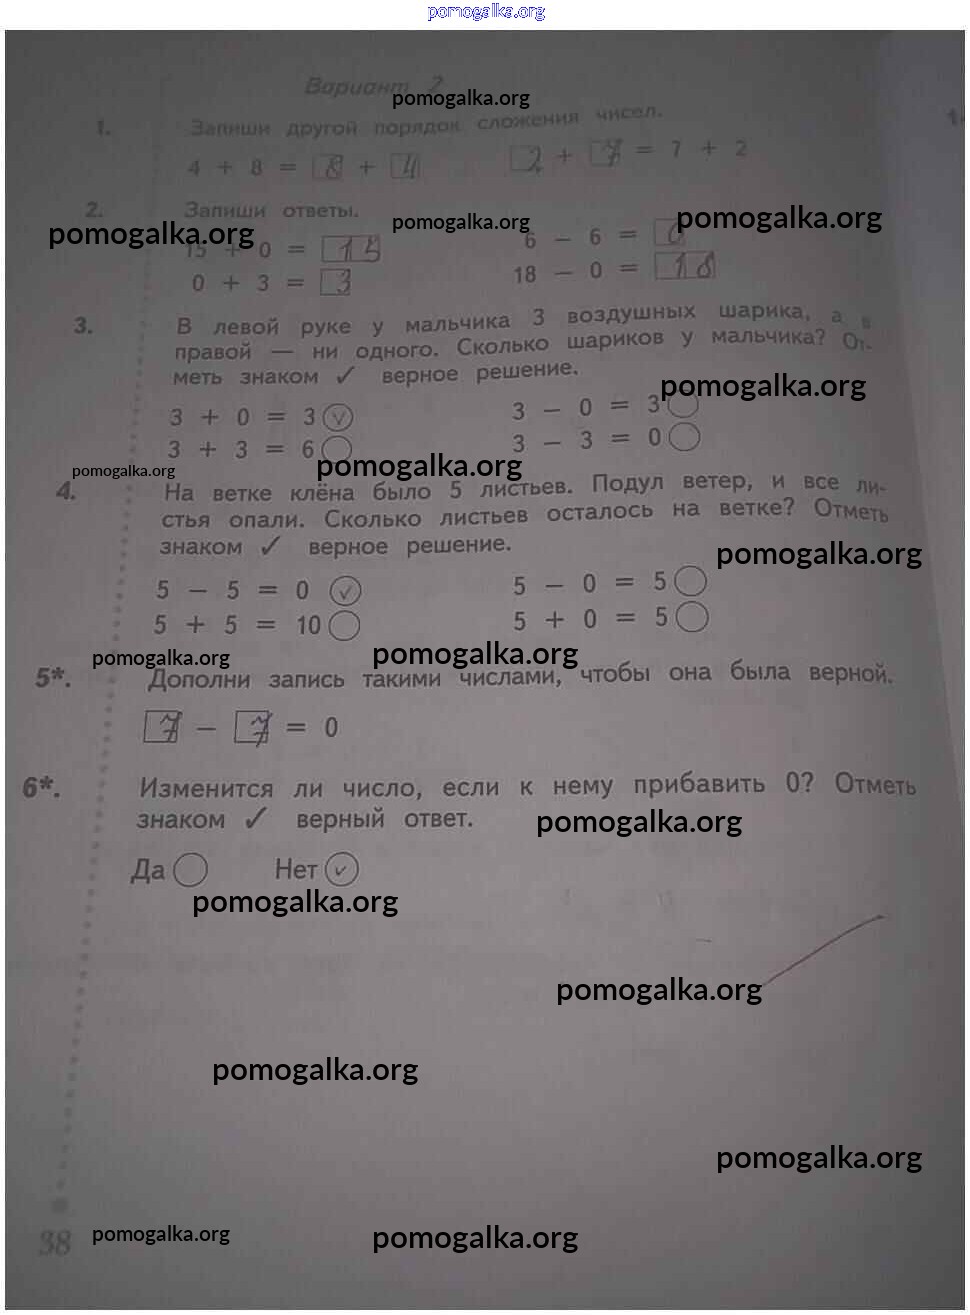 pomogalka.org
Вариант 2
pomogalka.org
1. Запиши другой порядок сложения чисел.
4 + 8 = 8 + 4    2 + 7 = 7 + 2
2. Запиши ответы.
pomogalka.org pomogalka.org pomogalka.org
15 + 0 = 15    6 − 6 = 0
0 + 3 = 3    18 − 0 = 18
3. В левой руке у мальчика 3 воздушных шарика, а в
правой — ни одного. Сколько шариков у мальчика? От-
меть знаком ✓ верное решение.
pomogalka.org
3 + 0 = 3 ✓    3 − 0 = 3
3 + 3 = 6    3 − 3 = 0
pomogalka.org pomogalka.org
4. На ветке клёна было 5 листьев. Подул ветер, и все ли-
стья опали. Сколько листьев осталось на ветке? Отметь
знаком ✓ верное решение.
pomogalka.org
5 − 5 = 0 ✓    5 − 0 = 5
5 + 5 = 10    5 + 0 = 5
pomogalka.org pomogalka.org
5*. Дополни запись такими числами, чтобы она была верной.
7 − 7 = 0
6*. Изменится ли число, если к нему прибавить 0? Отметь
знаком ✓ верный ответ.
pomogalka.org
Да    Нет ✓
pomogalka.org
pomogalka.org
pomogalka.org
pomogalka.org
38 pomogalka.org pomogalka.org